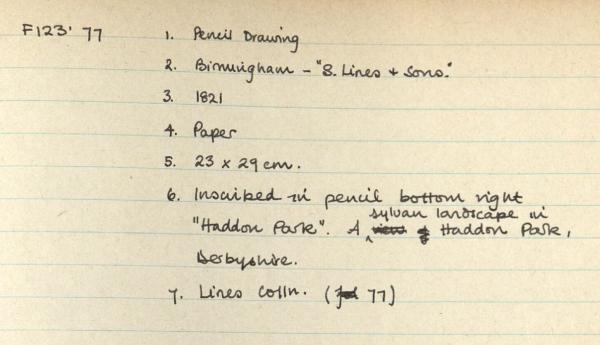 F123' 77
1. Pencil Drawing
2. Birmingham - "S. Lines + Sons."
3. 1821
4. Paper
5. 23 x 29 cm.
6. Inscribed in pencil bottom right
sylvan landscape in
"Haddon Park". A Haddon Park,
Derbyshire.
7. Lines Colln. (77)